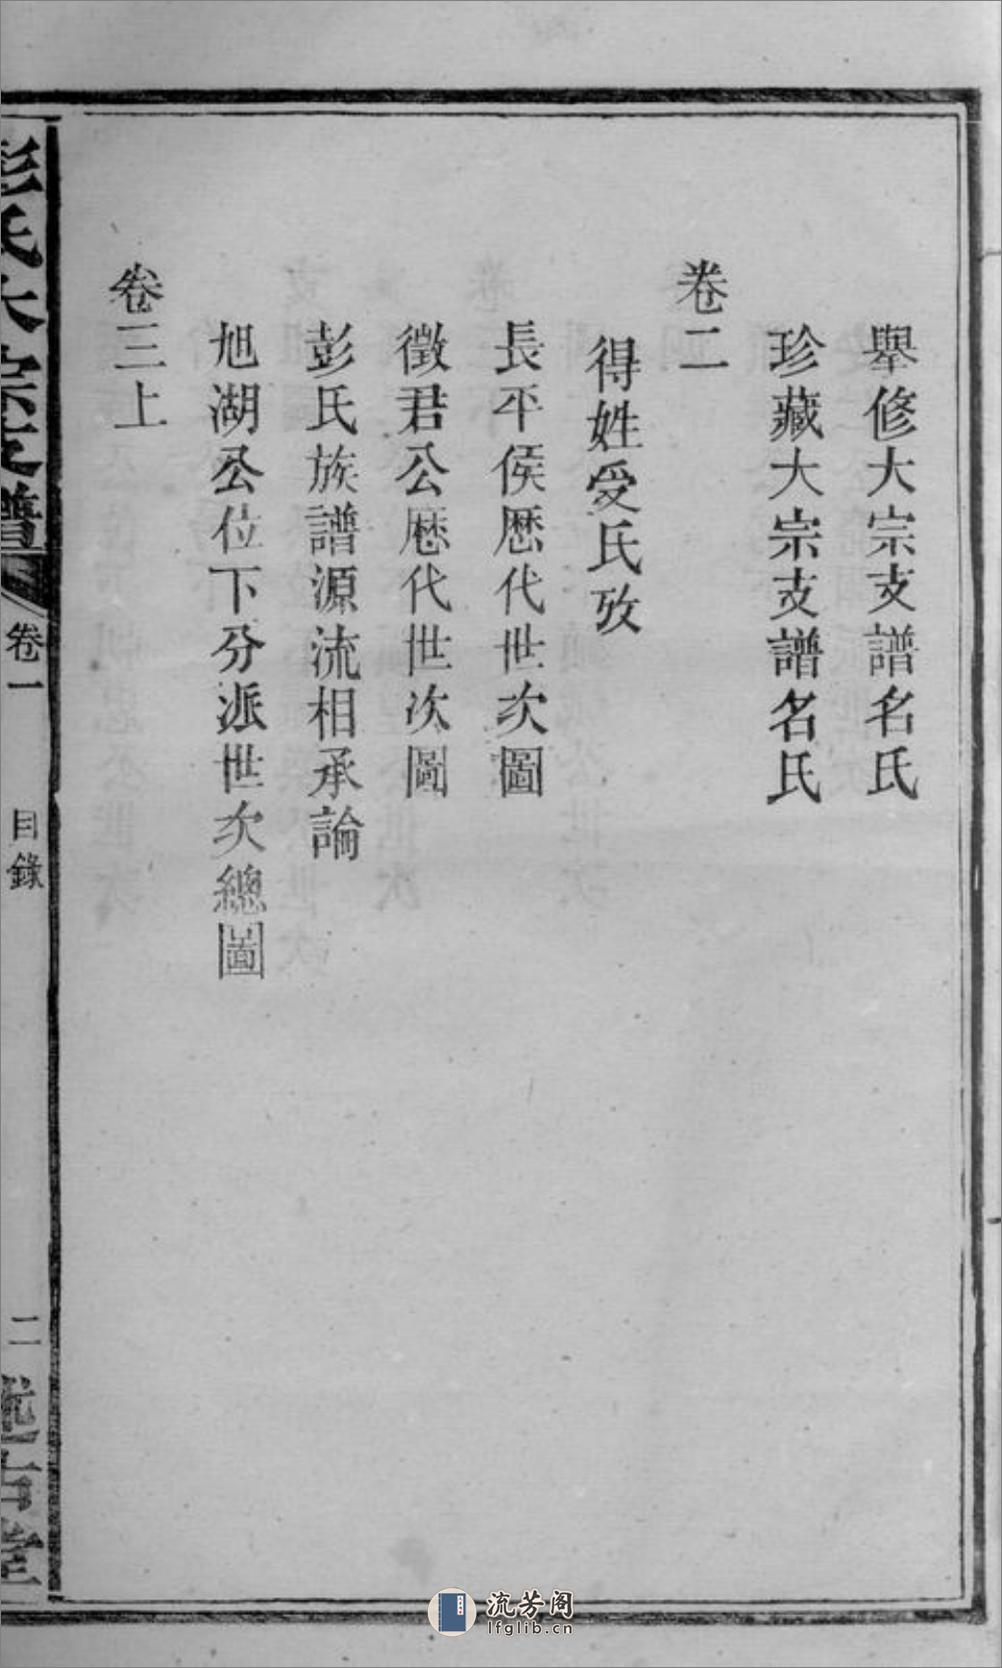 舉修大宗支譜名氏
珍藏大宗支譜名氏
卷二
得姓受氏攷
長平侯厯代世次圖
徵君公厯代世次圖
彭氏族譜源流相承論
旭湖公位下分派世次總圖
卷三上
彭氏大宗支譜
卷一
目錄
二
述古堂
流芳阁
lfglib.cn